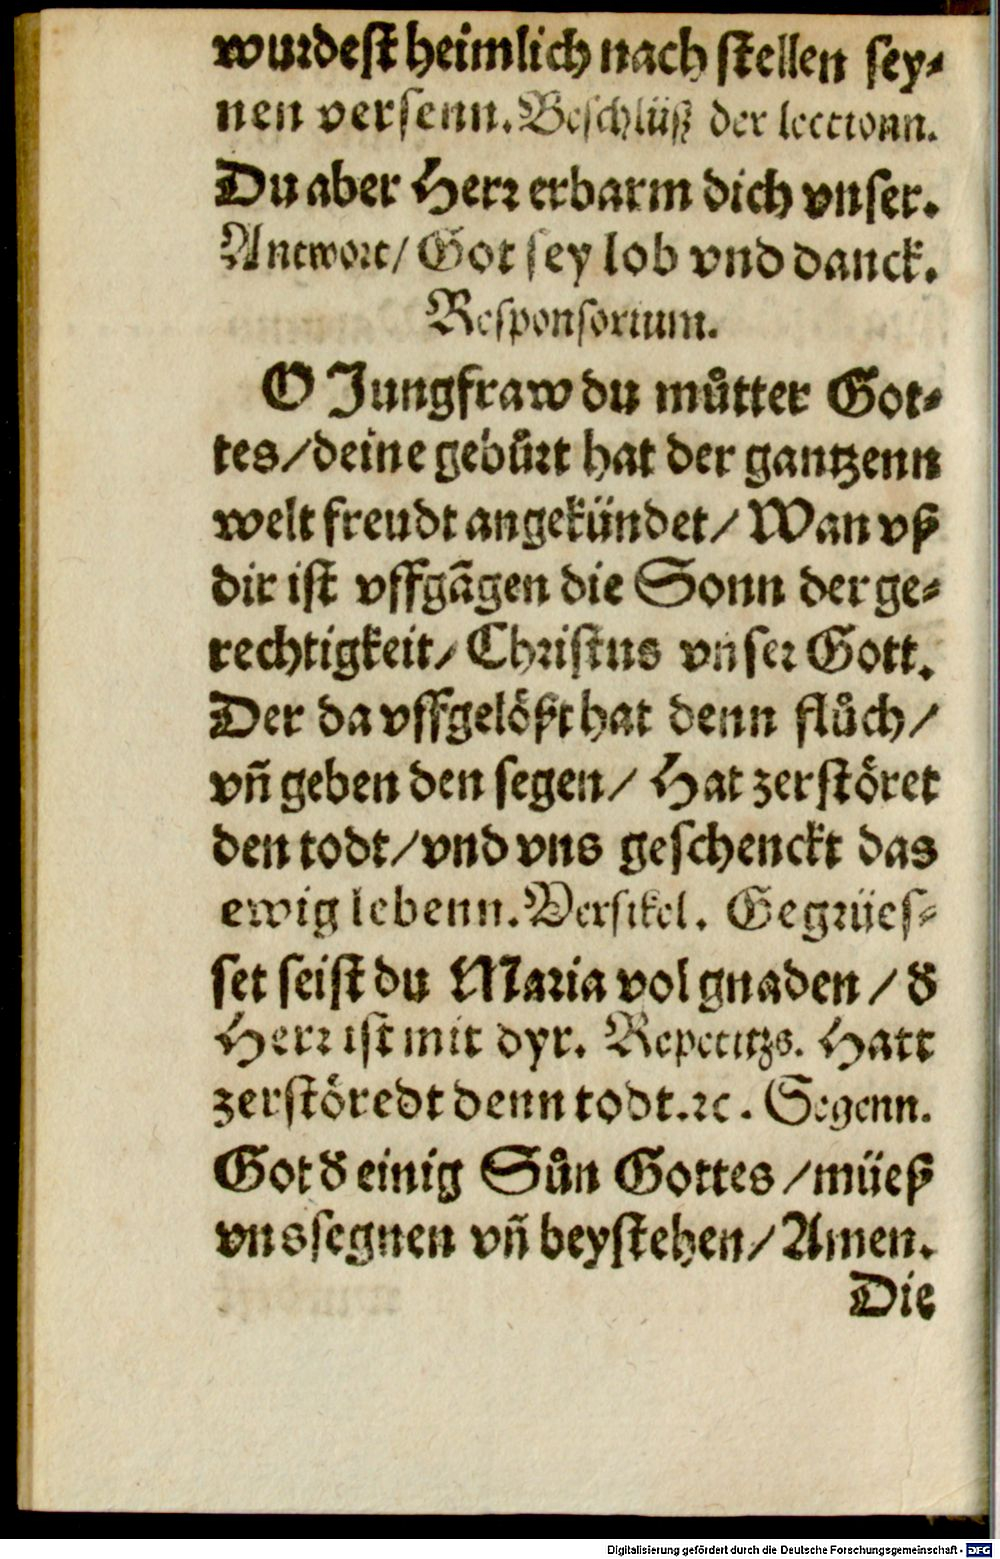 wurdest heimlich nach stellen sey⸗
nen versenn. Beschlüß der lectionn.
Du aber Herr erbarm dich vnser.
Antwort/ Got sey lob vnd danck.
Responsorium.
O Jungfraw du můtter Got⸗
tes/deine gebůrt hat der gantzenn
welt freudt angekündet/ Wan vß
dir ist vffgãgen die Sonn der ge⸗
rechtigkeit/ Christus vnser Gott.
Der da vffgelößt hat denn flůch/
vñ geben den segen/ Hat zerstöret
den todt/vnd vns geschenckt das
ewig lebenn. Versikel. Gegrües⸗
set seist du Maria vol gnaden / d̕
Herr ist mit dyr. Repetitzs. Hatt
zerstöredt denn todt.ꝛc. Segenn.
Got d̕ einig Sůn Gottes /müeß
vns segnen vñ beystehen/ Amen.
Die
Digitalisierung gefördert durch die Deutsche Forschungsgemeinschaft - DFG